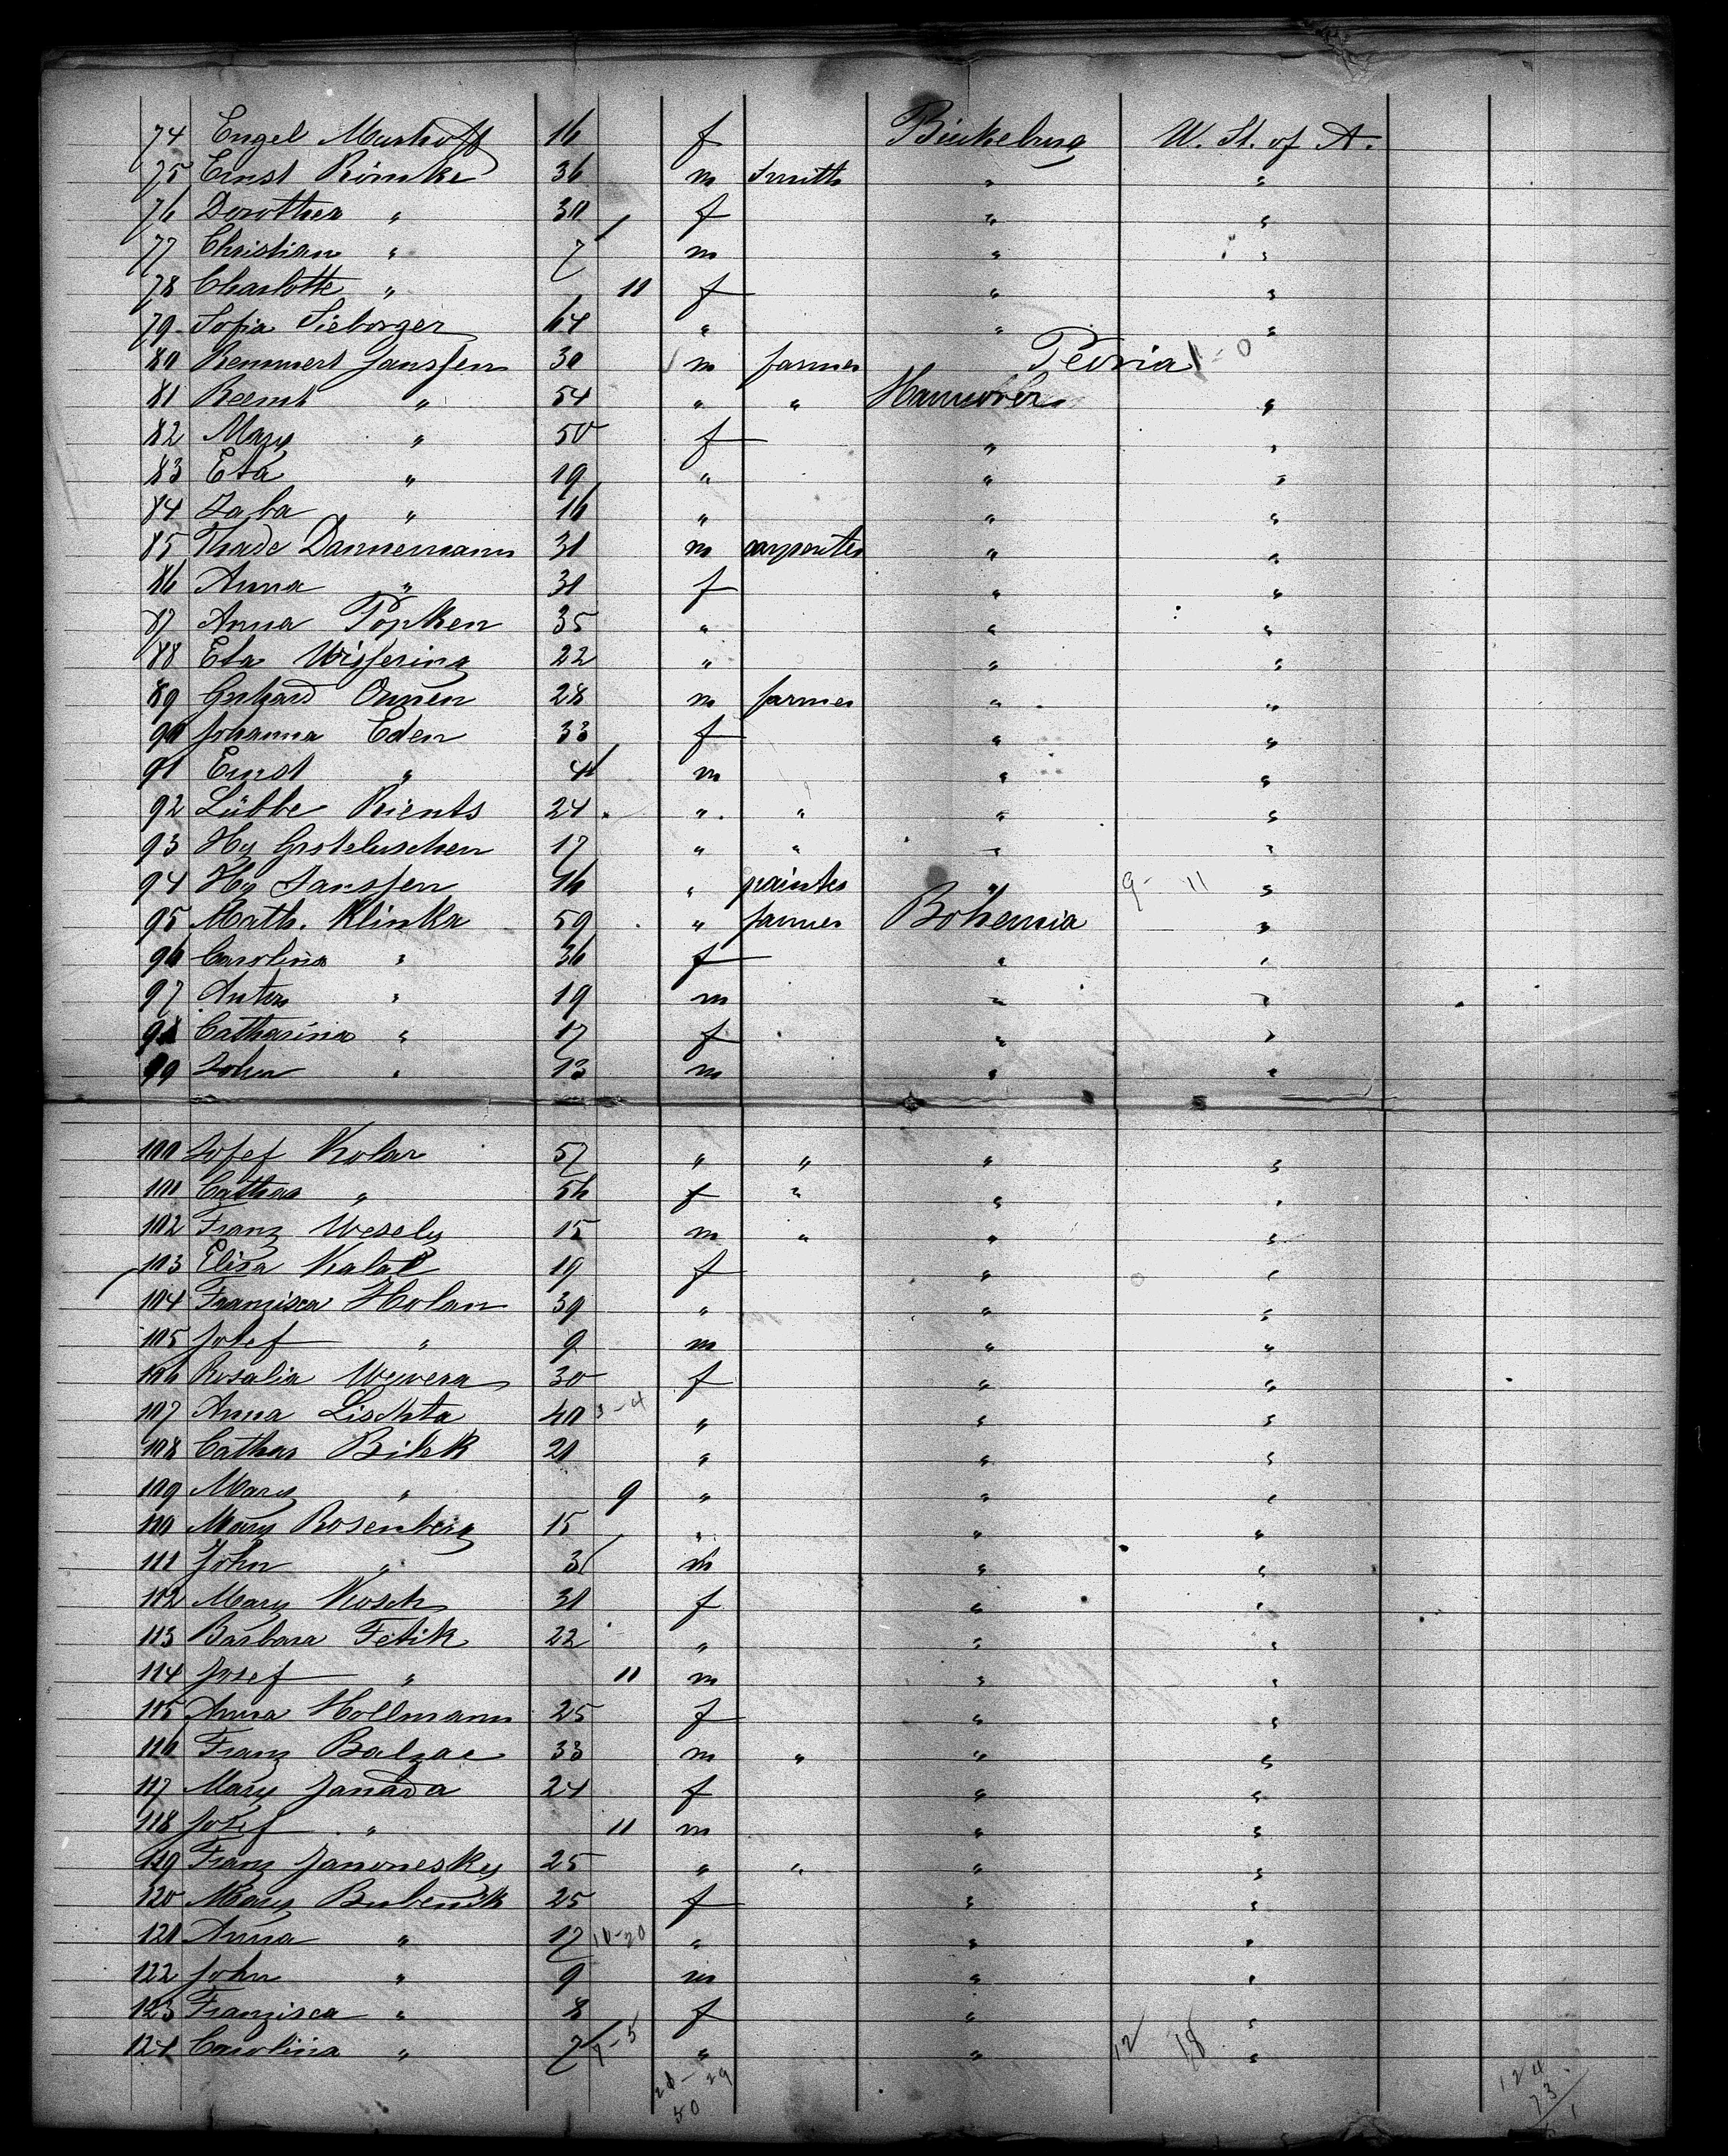 74 Engel Murhoff 16 f Bückeburg U. St. of A.
75 Ernst Römke 36 m Smith " "
76 Dorothea " 30 f " "
77 Christian " 7 m " "
78 Charlotte " 11 f " "
79 Sofia Sieborger 64 " " "
80 Remmert Janssen 30 m farmer Peoria
81 Reemt " 54 " " Hannover "
82 Mary " 50 f " "
83 Eta " 19 " " "
84 Jaba " 16 " " "
85 Thade Dannemann 31 m carpenter " "
86 Anna " 31 f " "
87 Anna Popken 35 " " "
88 Eta Wissering 22 " " "
89 Gerhard Onnen 28 m farmer " "
90 Johanna Eden 33 f " "
91 Ernst " 4 m " "
92 Lübbe Rients 24 " " " "
93 Hy Grotelüschen 17 " " " "
94 Hy Janssen 16 " painter " 9 - 11 "
95 Math. Klinka 59 " farmer Bohemia "
96 Carolina " 36 f " "
97 Anton " 19 m " "
98 Catharina " 17 f " "
99 John " 13 m " "
100 Josef Kolar 57 " " " "
101 Cathar " 56 f " " "
102 Franz Wesely 15 m " " "
103 Elisa Kalal 19 f " "
104 Franzisca Holan 39 " " "
105 Josef " 9 m " "
106 Rosalia Wewera 30 f " "
107 Anna Lischta 40 3-4 " " "
108 Cathar Bilek 21 " " "
109 Mary " 9 " " "
110 Mary Rosenberg 15 " " "
111 John " 3 m " "
112 Mary Kosch 31 f " "
113 Barbara Fetik 22 " " "
114 Josef " 11 m " "
115 Anna Hollmann 25 f " "
116 Franz Balzac 33 m " " "
117 Mary Janada 24 f " "
118 Josef " 11 m " "
119 Franz Janonesky 25 " " " "
120 Mary Bubenik 25 f " "
121 Anna " 17 10-20 " " "
122 John " 9 m " "
123 Franzisca " 8 f " "
124 Carolina " 7 1-5 " " 12 18 "
21-29 124
50 73